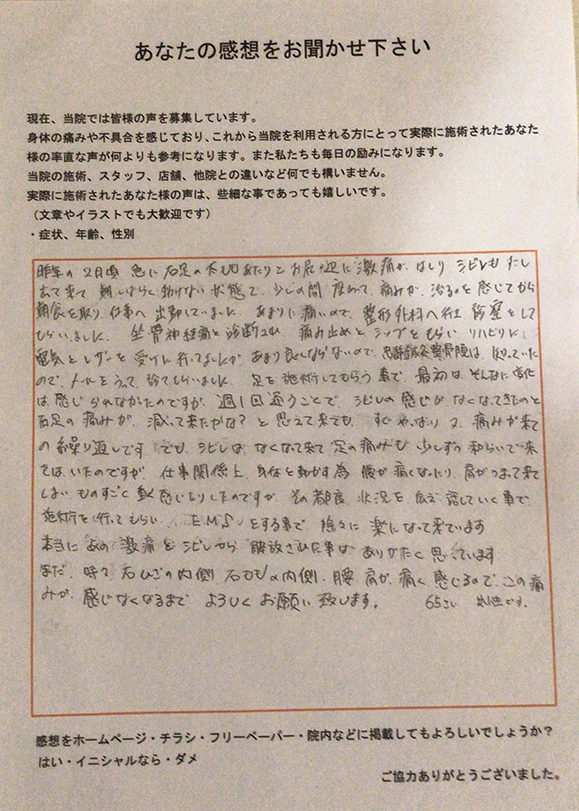 あなたの感想をお聞かせ下さい
現在、当院では皆様の声を募集しています。
身体の痛みや不具合を感じており、これから当院を利用される方にとって実際に施術されたあなた
様の率直な声が何よりも参考になります。また私たちも毎日の励みになります。
当院の施術、スタッフ、店舗、他院との違いなど何でも構いません。
実際に施術されたあなた様の声は、些細な事であっても嬉しいです。
（文章やイラストでも大歓迎です）
・症状、年齢、性別
昨年の2月頃 急に右足の太ももあたりとお尻の辺に激痛がはしり、シビレも
出て来て 朝しばらく動けない状態で、少しの間座わって、痛みが治るのを感じてから
朝食を取り、仕事へ出勤していました。あまりに痛いので、整形外科へ行き診察をして
もらいました。坐骨神経痛と診断され 痛み止めとシップをもらい リハビリに
電気とレーザーを受けに行ってましたが あまり良くならないので、鍼灸整骨院は、知っていた
ので、メールをうって、診てもらいました。足を施術してもらう事で、最初は、そんなに変化
は感じられなかったのですが、週1回通うことで、シビレの感じがなくなってきたのと
右足の痛みが、減って来たかな？と思えて来ても、すぐ、やっぱり又、痛みが来て
の繰り返しです でも、シビレは、なくなって来て 足の痛みも 少しずつ和らいで来
てはいたのですが 仕事関係上、身体を動かす為 腰が痛くなったり、肩がつまって来て
しまい ものすごく重く感じたりしたのですが、その都度、状況を伝え 話していく事で
施術を行ってもらい、EMSをする事で 徐々に楽になって来ています
本当に あの激痛とシビレから 解放された事は ありがたく思っています
まだ、時々 右ひざの内側 右ももの内側、腰 肩が、痛く感じるので、この痛
みが、感じなくなるまで よろしくお願い致します。 65さい 女性です。
感想をホームページ・チラシ・フリーペーパー・院内などに掲載してもよろしいでしょうか？
はい・イニシャルなら・ダメ
ご協力ありがとうございました。